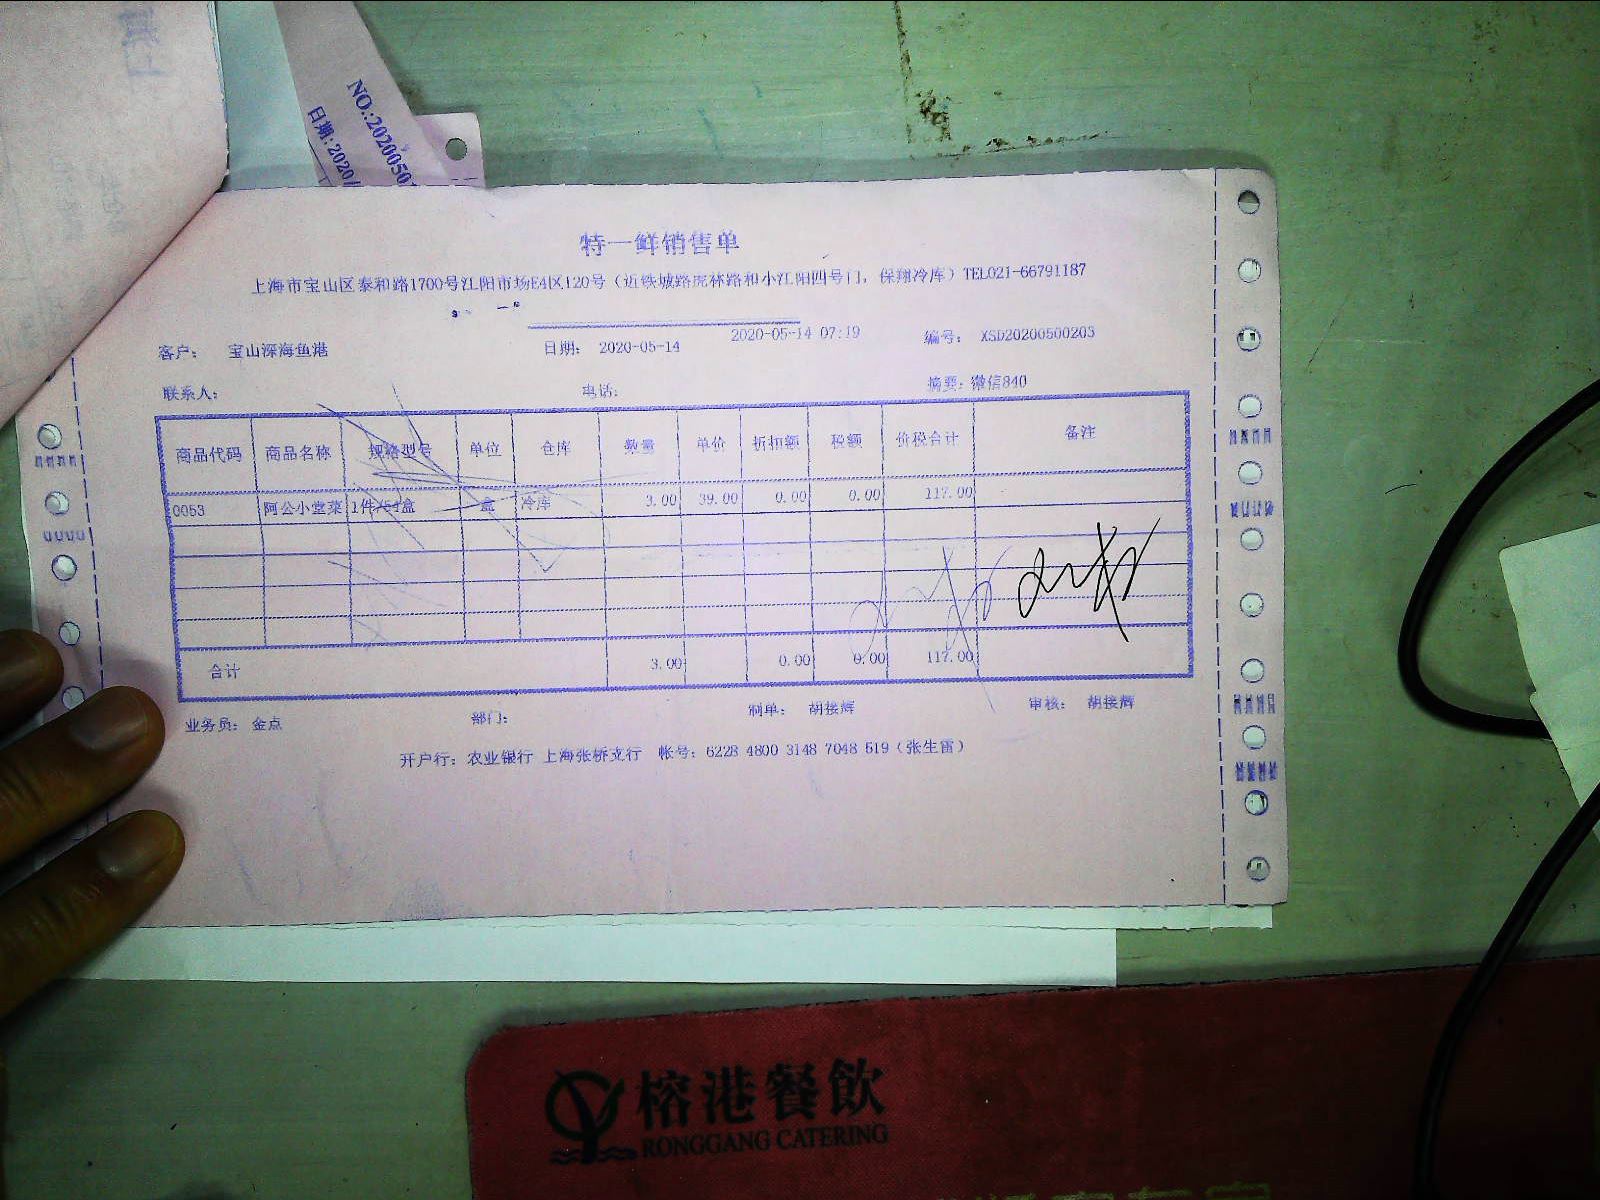 NO.:20200501
日期:2020/
特一鲜销售单
上海市宝山区泰和路1700号江阳市场E4区120号（近铁城路虎林路和小江阳四号门，保翔冷库）TEL021-66791187
2020-05-14 07:19
客户： 宝山深海鱼港 日期： 2020-05-14 编号： XSD20200500203
联系人： 电话： 摘要：微信840
商品代码 商品名称 规格型号 单位 仓库 数量 单价 折扣额 税额 价税合计 备注
0053 阿公小堂菜 1件/54盒 盒 冷库 3.00 39.00 0.00 0.00 117.00
合计 3.00 0.00 0.00 117.00
业务员： 金点 部门： 制单： 胡接辉 审核： 胡接辉
开户行：农业银行 上海张桥支行 帐号：6228 4800 3148 7048 519（张生雷）
榕港餐飲
RONGGANG CATERING